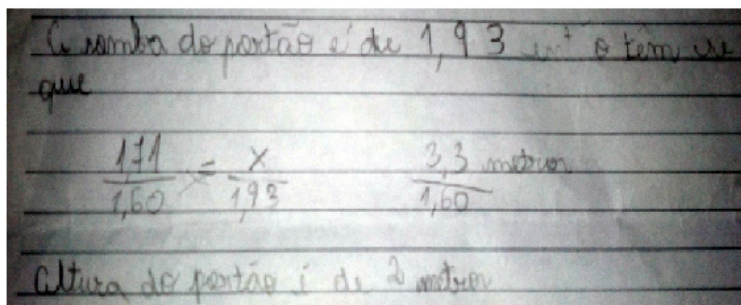 A somba do portão é de 1,93 o tem se
que
1,71 / 1,60 = x / 1,93 3,3 metros / 1,60
Altura do portão i de 2 metros